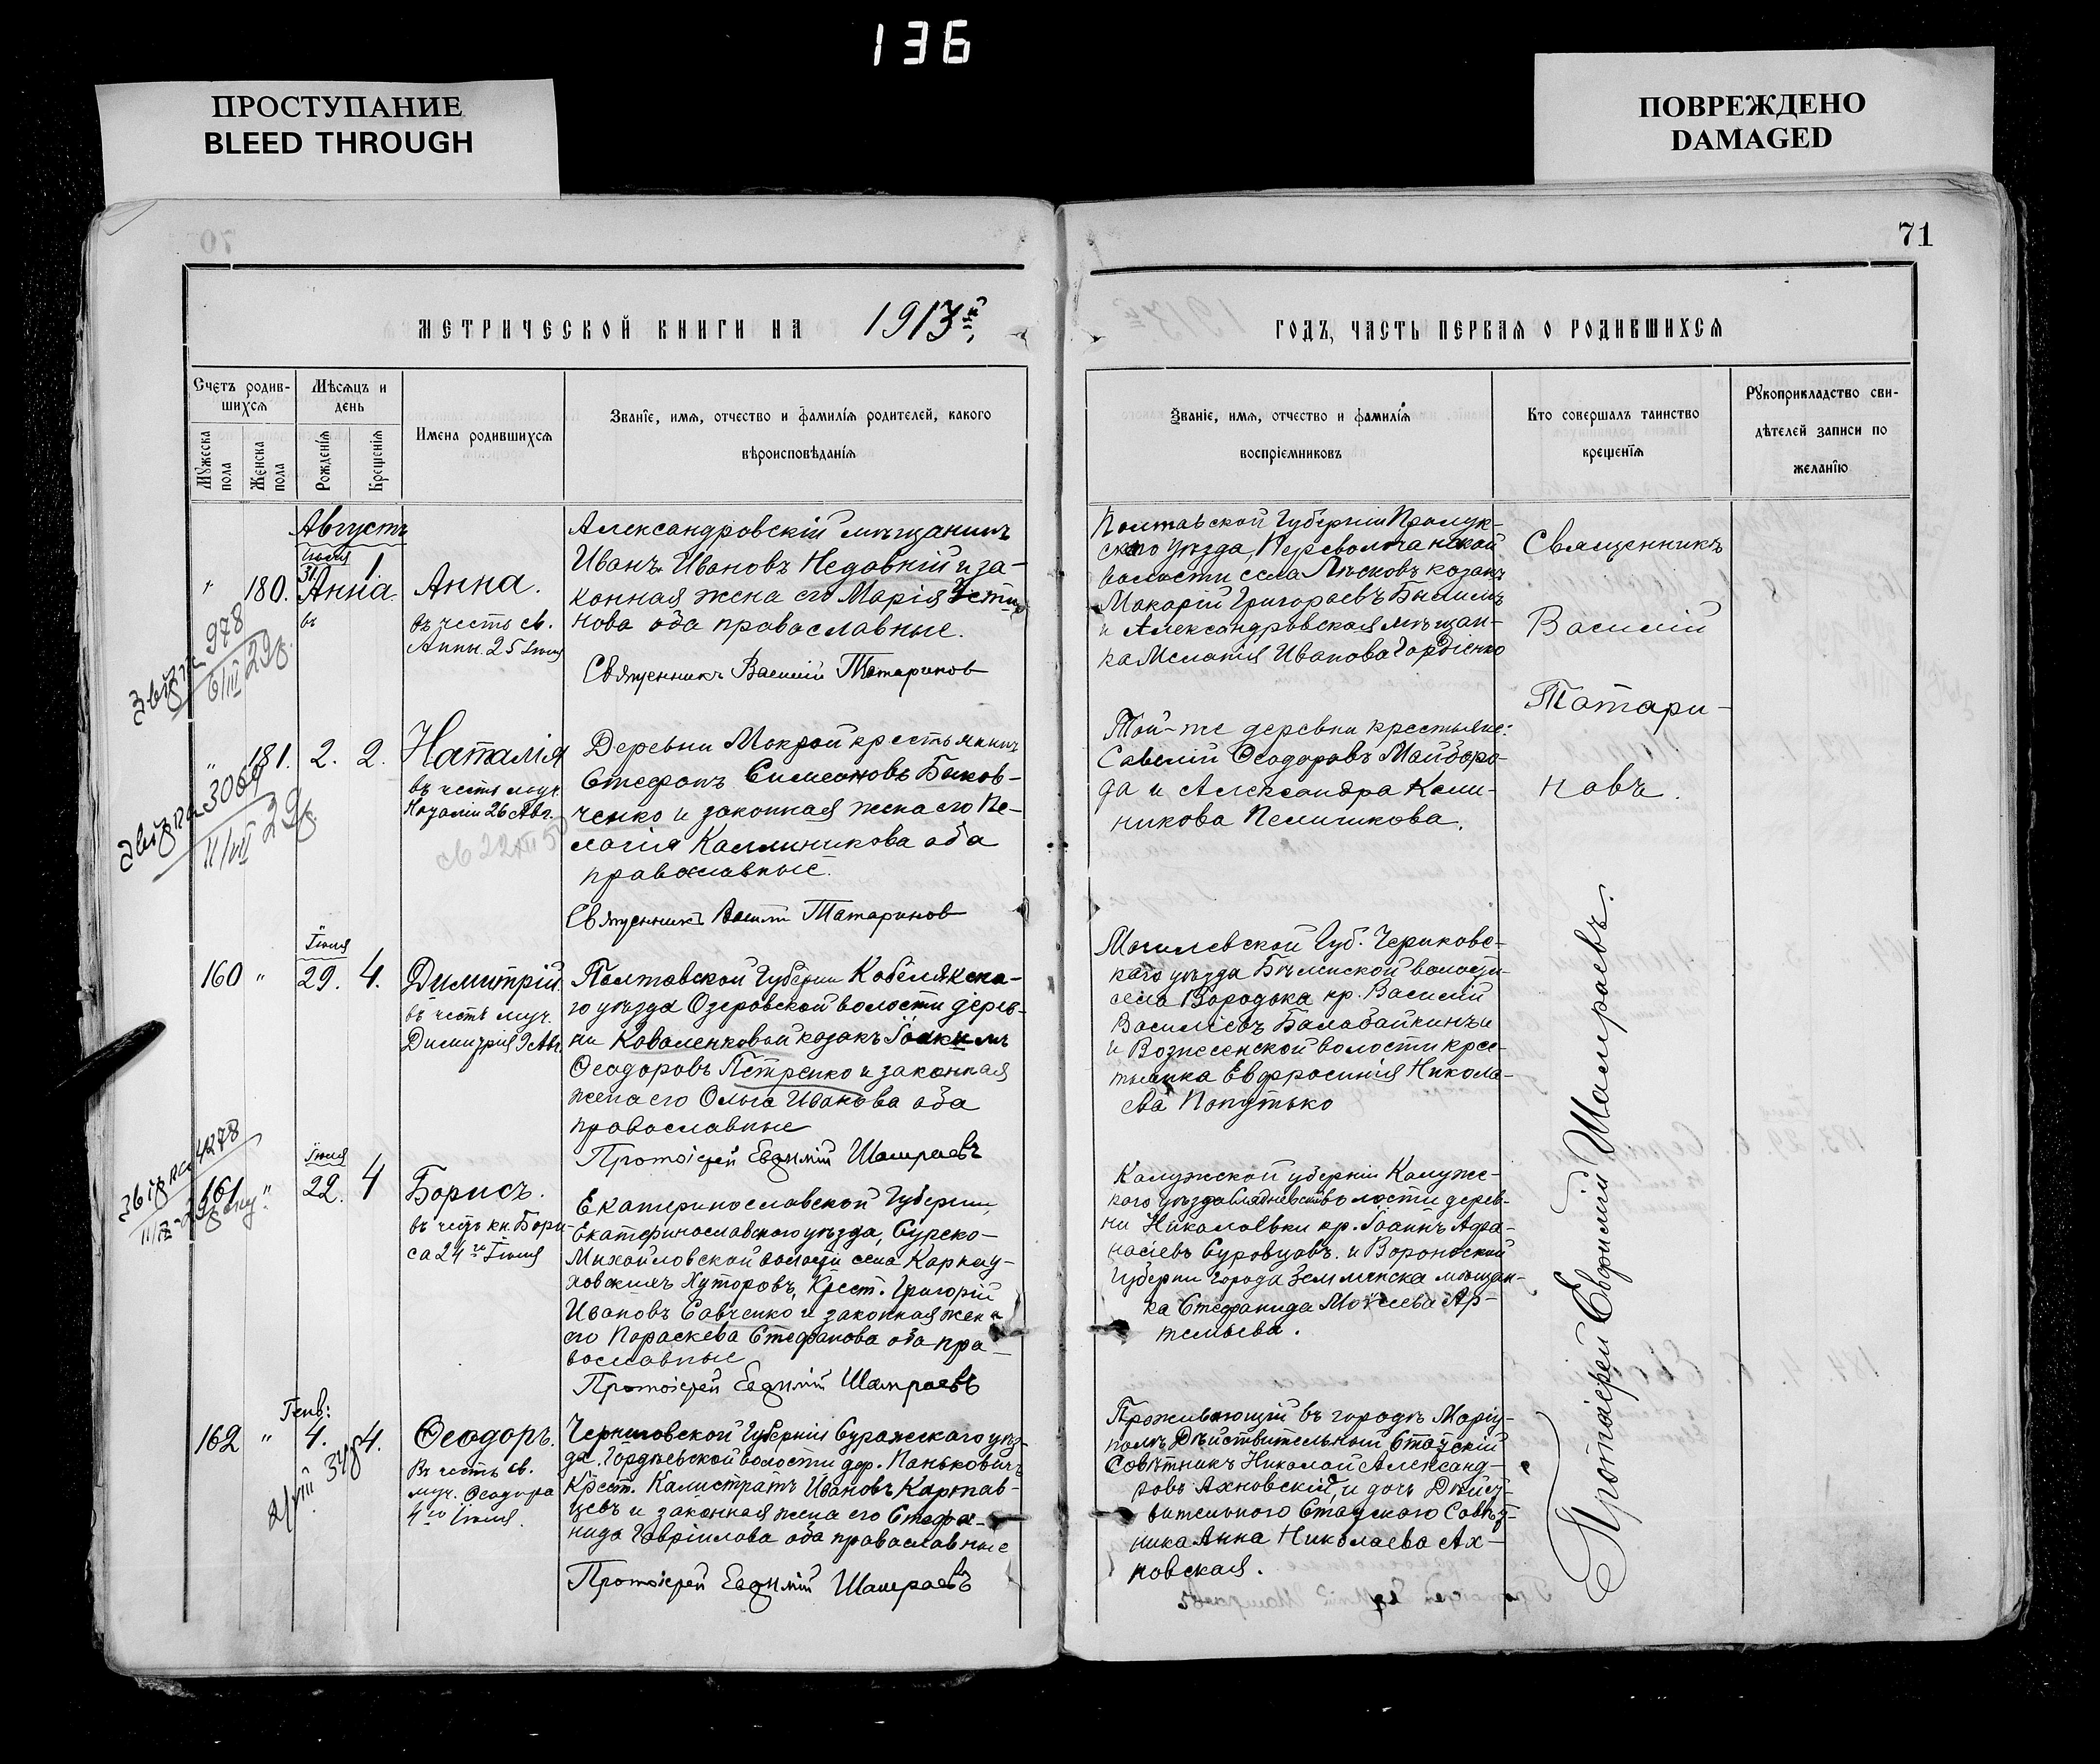 136
ПРОСТУПАНИЕ
BLEED THROUGH
ПОВРЕЖДЕНО
DAMAGED
71
МЕТРИЧЕСКОЙ КНИГИ НА 1913й
ГОДЪ, ЧАСТЬ ПЕРВАЯ О РОДИВШИХСЯ
Счетъ родив-
шихся
Мужеска пола
Женска пола
Мѣсяцъ и
день
Рожденія
Крещенія
Имена родившихся
Званіе, имя, отчество и фамилія родителей, какого
вѣроисповѣданія
Званіе, имя, отчество и фамилія
воспріемниковъ
Кто совершалъ таинство
крещенія
Рукоприкладство сви-
дѣтелей записи по
желанію
Августъ
Іюля
180. 31. 1
Анна
Анна.
въ честь св.
Анны. 25 Іюля
978
6/III 29
Александровскій мѣщанинъ
Иванъ Ивановъ Недавній и за-
конная жена его Марія
нова оба православные.
Священникъ Василій Татаринов
Полтавской Губерніи Прилук-
скаго уѣзда, Переволочанской
волости села казакъ
Макарій Григорьевъ
и Александровская мѣщан-
ка Иванова Гордіенко
Священникъ
Василій
Татари-
новъ.
181. 2. 2.
Наталія
въ честь муч.
Наталіи 26 Авг.
3069
11/VII 29
Деревни Мокрой крестьянинъ
Стефанъ Симеоновъ Быков-
ченко и законная жена его Пе-
лагія Каллиникова оба
православные.
Священникъ Василій Татаринов
Той-же деревни крестьяне:
Савелій Ѳеодоровъ Майборо-
да и Александра Кали-
никова Пелишкова.
Іюля
160 " 29. 4.
Димитрій.
въ честь муч.
Димитрія 9 Авг.
Полтавской Губерніи Кобелякска-
го уѣзда Озеровской волости дерев-
ни Коваленковой козакъ Іоакимъ
Ѳеодоровъ Петренко и законная
жена его Ольга Иванова оба
православные
Протоіерей Евфимій Шамраевъ
Могилевской Губ. Чериковс-
каго уѣзда волости
села Городока кр. Василій
Василіевъ Балабайкинъ и
и Вознесенской волости крес-
тьянка Евфросинія Никола-
ева Попутько
Протоіерей Евфимій Шамраевъ.
4278
Іюля
161 " 22. 4
Борисъ.
въ честь кн. Бори-
са 24го Іюля
Екатеринославской Губерніи
Екатеринославскаго уѣзда, Сурско-
Михайловской волости села Карнау-
ховскихъ Хуторовъ, Крест. Григорій
Ивановъ Савченко и законная жена
его Параскева Стефанова оба пра-
вославные
Протоіерей Евфимій Шамраевъ
Калужской губерніи Калужс-
каго уѣзда волости дерев-
ни Николаевки кр. Іоаннъ Афа-
насіевъ Суровцовъ. и Воронежской
Губерніи города Землянска мѣщан-
ка Стефанида Моѵсеева Ар-
темьева.
Генв:
162 " 4. 4.
Ѳеодоръ.
Въ честь св.
муч. Ѳеодора
4го Іюля.
Черниговской Губерніи Суражскаго уѣз-
да. Гордѣевской волости дер. Паньковичъ
Крест. Калистратъ Ивановъ Карпав-
цевъ и законная жена его Стефа-
нида Гавріилова оба православные
Протоіерей Евфимій Шамраевъ
Проживающій въ городѣ Маріу-
полѣ Дѣйствительный Статскій
Совѣтникъ Николай Александ-
ровъ Ахновскій, и дочь Дѣйст-
вительного Статского Совѣт-
ника Анна Николаева Ах-
новская.